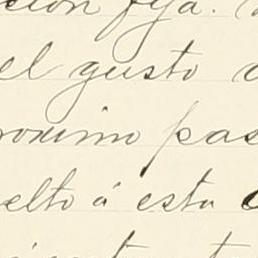 ción fija.
el gusto
roximo pas
elto á esta